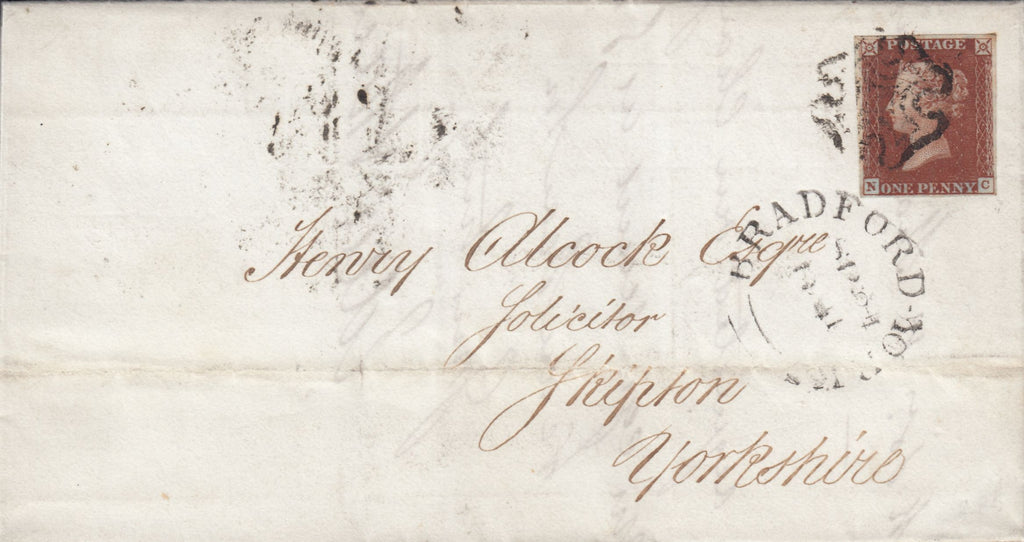 POSTAGE
N ONE PENNY C
BRADFORD-YORKS
SP 24
1841
Henry Alcock Esqre
Solicitor
Skipton
Yorkshire